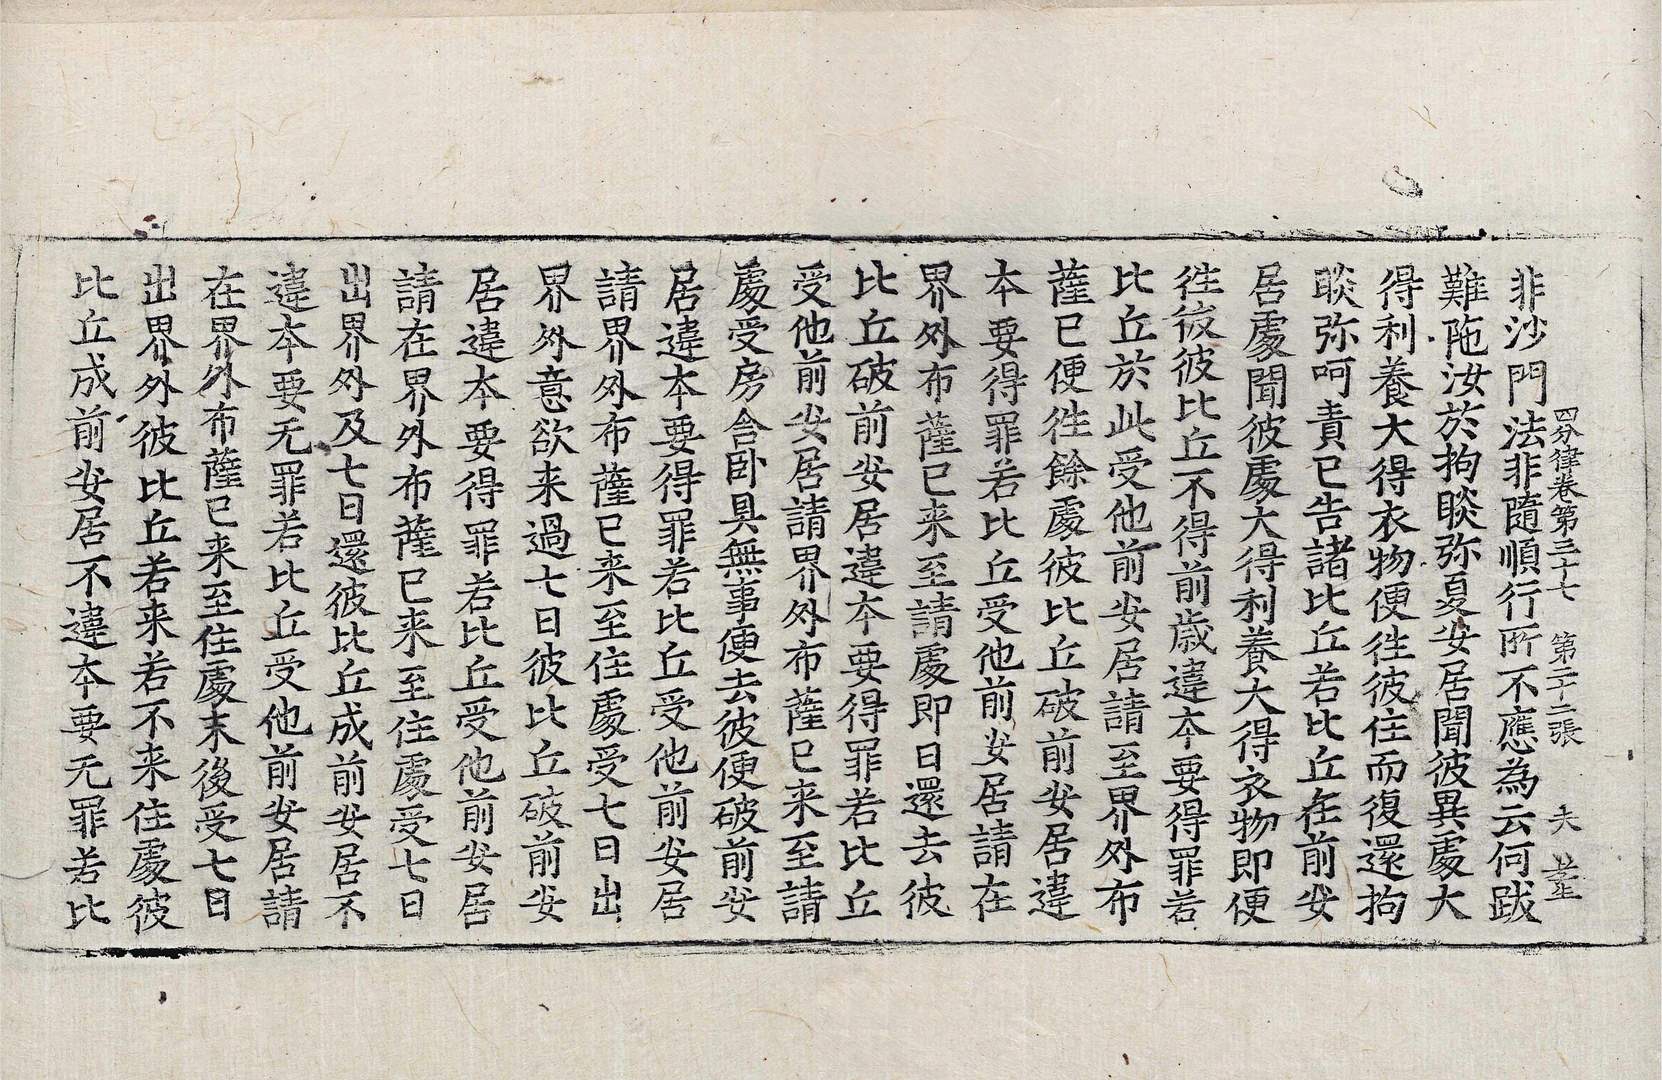 四分律卷第三十七 第二十二張 夫
非沙門法非隨順行所不應為云何跋
難陁汝於拘睒弥夏安居聞彼異處大
得利養大得衣物便徃彼住而復還拘
睒弥呵責已告諸比丘若比丘在前安
居處聞彼處大得利養大得衣物即便
徃彼彼比丘不得前歳違本要得罪若
比丘於此受他前安居請至界外布
薩已便徃餘處彼比丘破前安居違
本要得罪若比丘受他前安居請在
界外布薩已来至請處即日還去彼
比丘破前安居違本要得罪若比丘
受他前安居請界外布薩已来至請
處受房舍卧具無事便去彼便破前安
居違本要得罪若比丘受他前安居
請界外布薩已来至住處受七日出
界外意欲来過七日彼比丘破前安
居違本要得罪若比丘受他前安居
請在界外布薩已来至住處受七日
出界外及七日還彼比丘成前安居不
違本要无罪若比丘受他前安居請
在界外布薩已来至住處末後受七日
出界外彼比丘若来若不来住處彼
比丘成前安居不違本要无罪若比